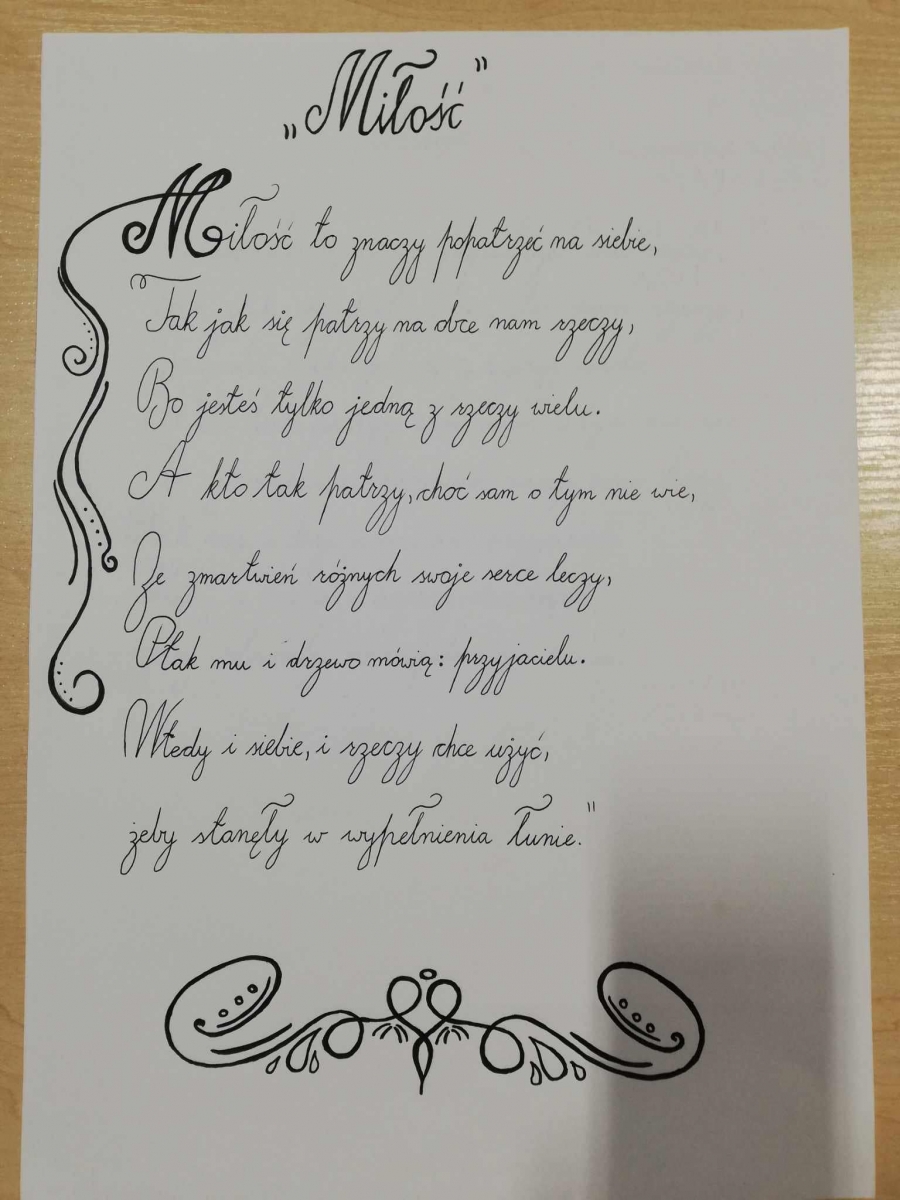 „Miłość”
Miłość to znaczy popatrzeć na siebie,
Tak jak się patrzy na obce nam rzeczy,
Bo jesteś tylko jedną z rzeczy wielu.
A kto tak patrzy, choć sam o tym nie wie,
Ze zmartwień różnych swoje serce leczy,
Ptak mu i drzewo mówią: przyjacielu.
Wtedy i siebie, i rzeczy chce użyć,
żeby stanęły w wypełnienia łunie."